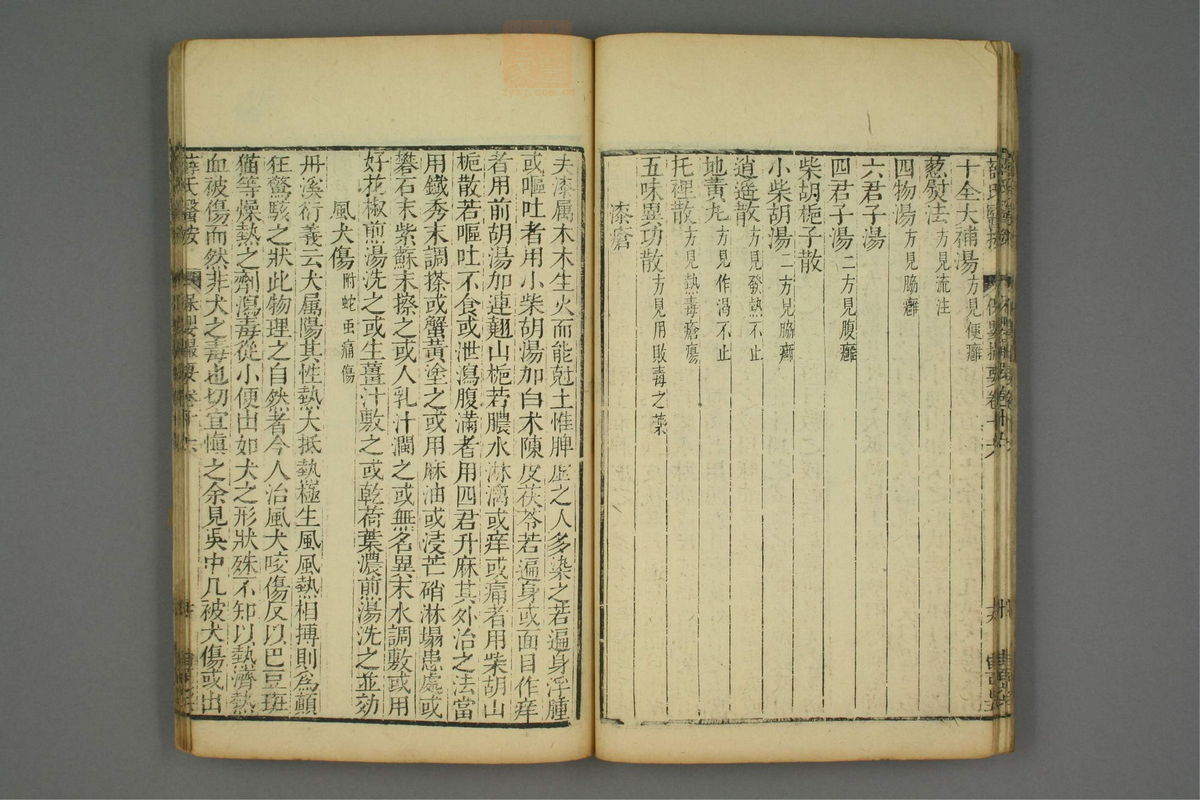 十全大補湯方見便癰
葱熨法方見流注
四物湯方見脇癰
六君子湯
四君子湯二方見腹癰
柴胡梔子散
小柴胡湯二方見脇癰
逍遥散方見發熱不止
地黃丸方見作渴不止
托裡散方見熱毒瘡瘍
五味異功散方見用敗毒之藥
漆瘡
夫漆属木木生火而能尅土惟脾虛之人多染之若遍身浮腫
或嘔吐者用小柴胡湯加白术陳皮茯苓若遍身或面目作痒
者用前胡湯加連翹山梔若膿水淋漓或痒或痛者用柴胡山
梔散若嘔吐不食或泄瀉腹滿者用四君升麻其外治之法當
用鐵秀末調搽或蟹黃塗之或用麻油或浸芒硝淋塌患處或
礬石末紫蘇末搽之或人乳汁潤之或無名異末水調敷或用
好花椒煎湯洗之或生薑汁敷之或乾荷葉濃煎湯洗之並効
風犬傷附蛇虫痛傷
丹溪衍義云犬属陽其性熱大抵熱極生風風熱相搏則為顛
狂驚駭之狀此物理之自然者今人治風犬咬傷反以巴豆斑
猫等燥熱之劑瀉毒從小便出如犬之形狀殊不知以熱濟熱
血被傷而然非犬之毒也切宜慎之余見吳中凡被犬傷或出
薛氏醫按 保嬰撮要卷十六